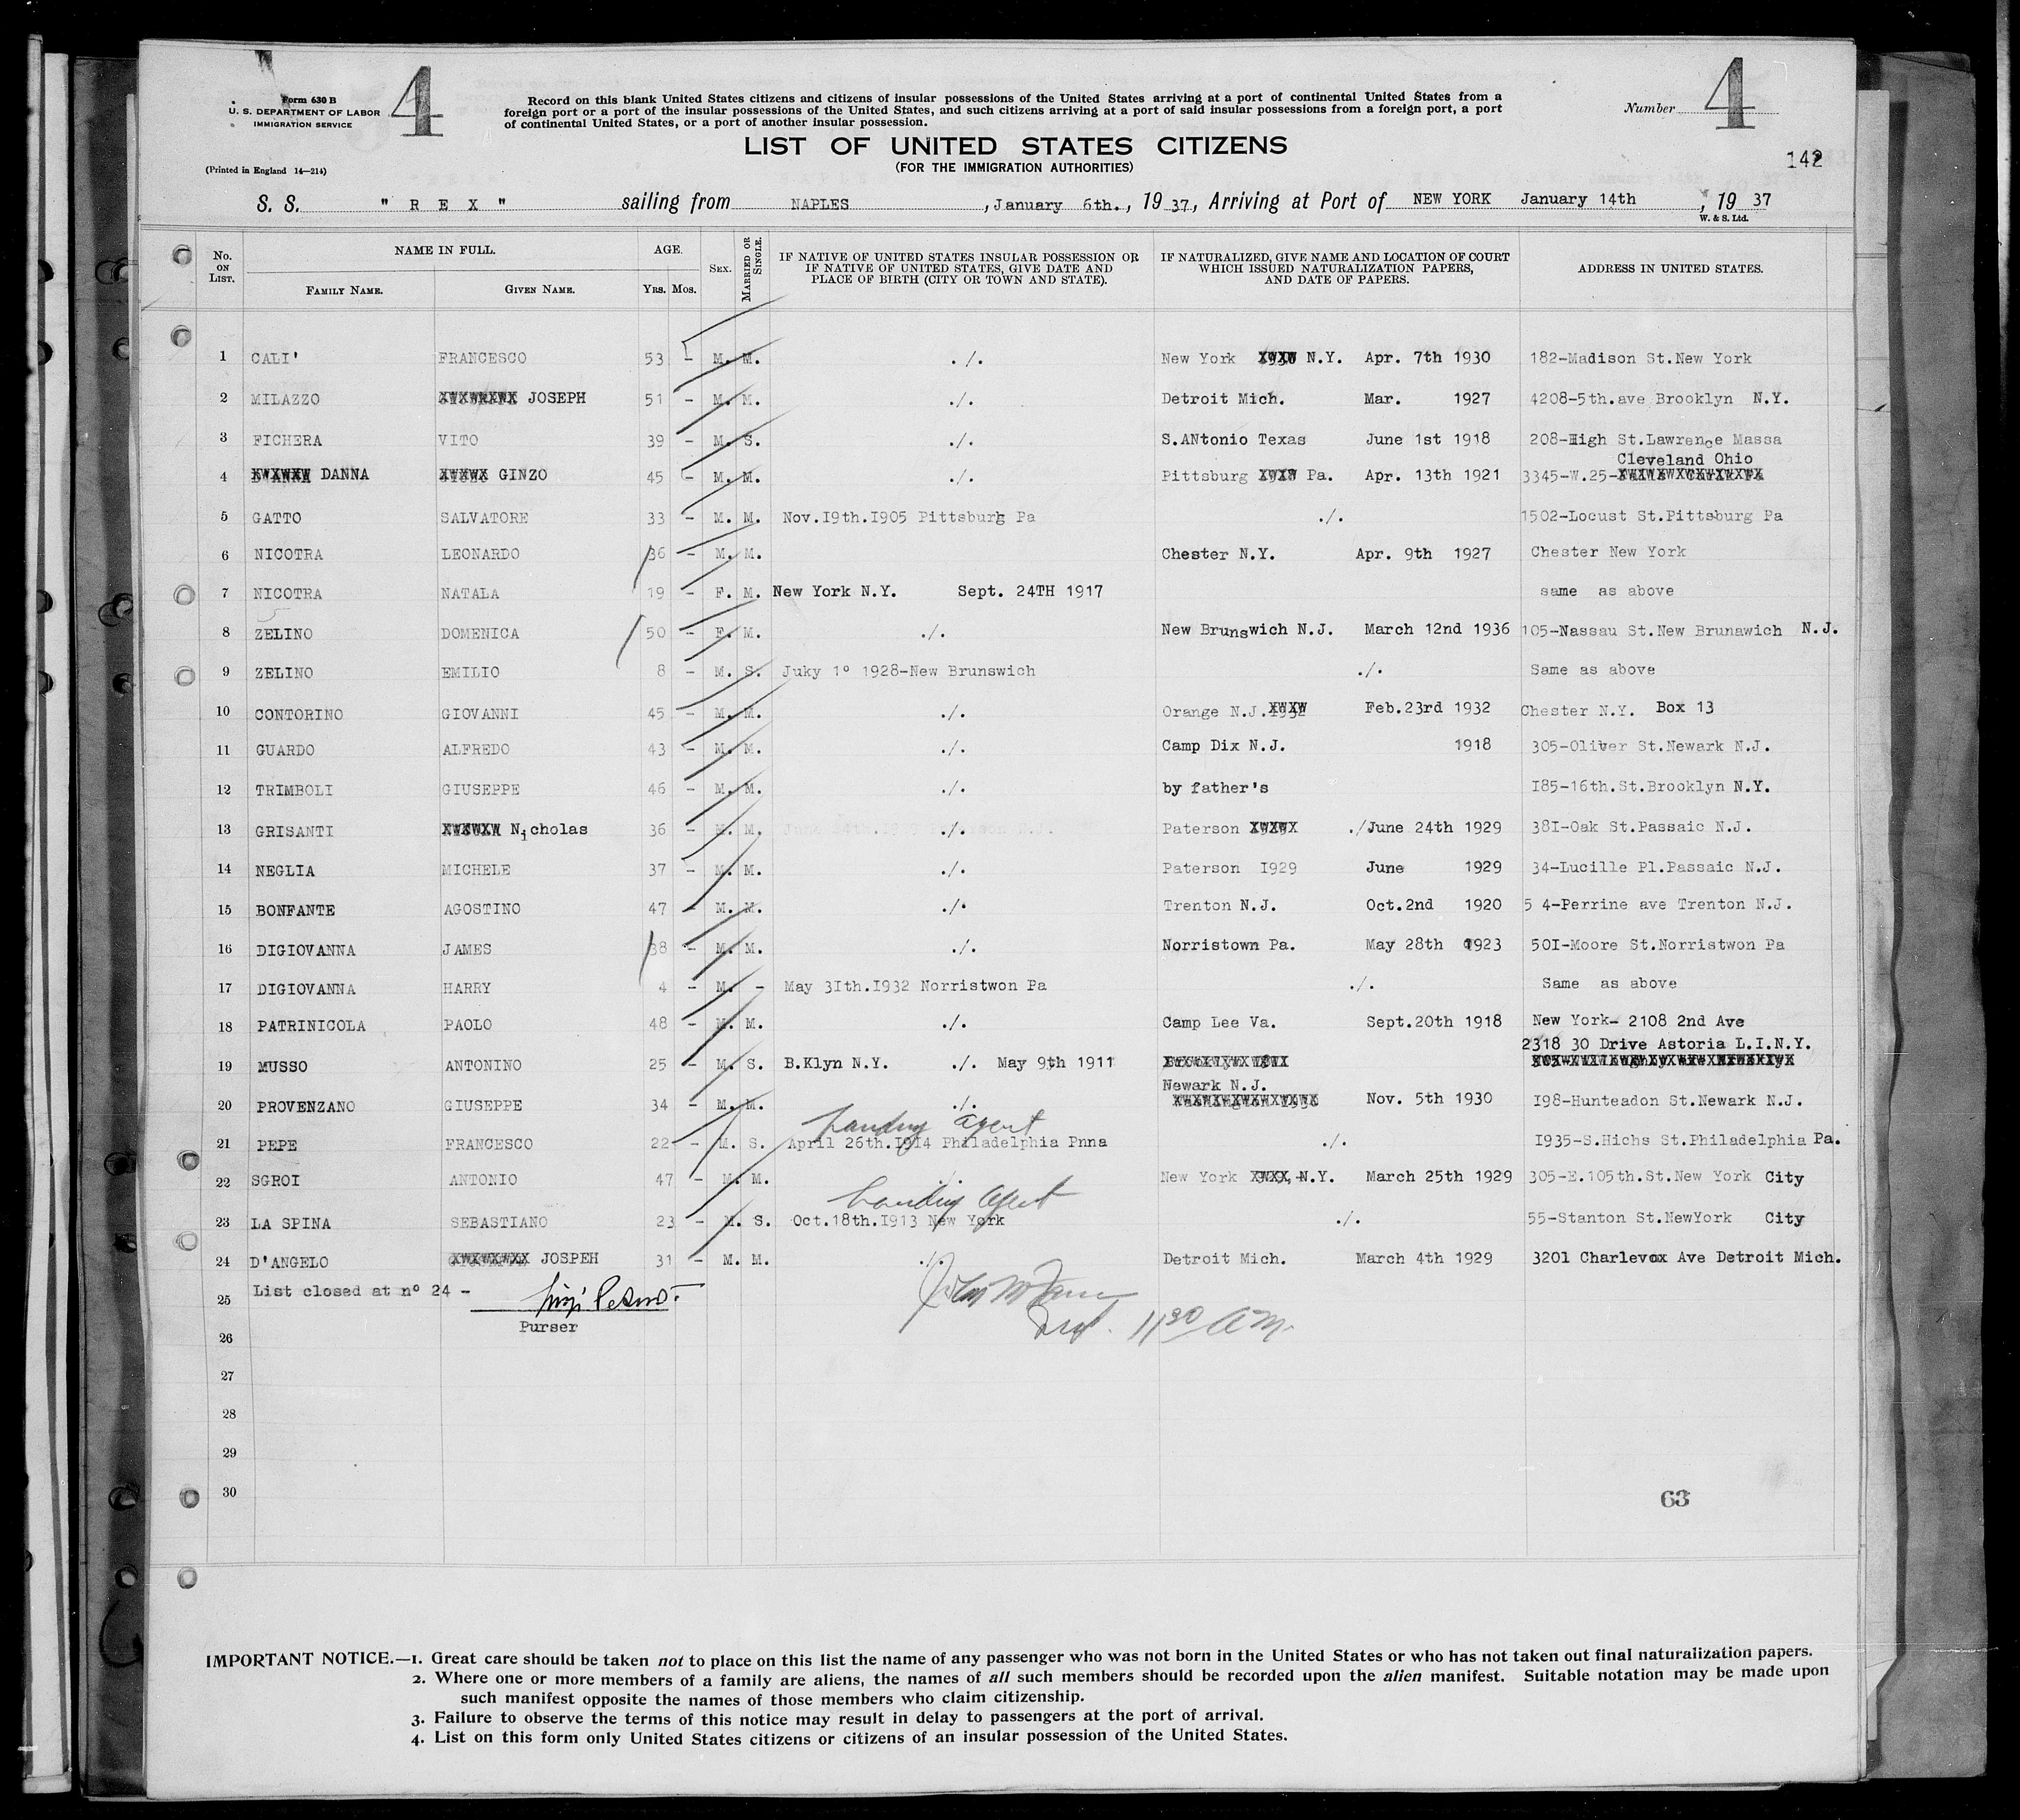 Form 630 B
U. S. DEPARTMENT OF LABOR
IMMIGRATION SERVICE
4
Record on this blank United States citizens and citizens of insular possessions of the United States arriving at a port of continental United States from a
foreign port or a port of the insular possessions of the United States, and such citizens arriving at a port of said insular possessions from a foreign port, a port
of continental United States, or a port of another insular possession.
Number 4
LIST OF UNITED STATES CITIZENS
(FOR THE IMMIGRATION AUTHORITIES)
142
(Printed in England 14—214)
S. S. " R E X " sailing from NAPLES , January 6th. , 19 37 , Arriving at Port of NEW YORK January 14th , 19 37
W. & S. Ltd.
No. ON LIST. NAME IN FULL. AGE. SEX. MARRIED OR SINGLE. IF NATIVE OF UNITED STATES INSULAR POSSESSION OR IF NATIVE OF UNITED STATES, GIVE DATE AND PLACE OF BIRTH (CITY OR TOWN AND STATE). IF NATURALIZED, GIVE NAME AND LOCATION OF COURT WHICH ISSUED NATURALIZATION PAPERS, AND DATE OF PAPERS. ADDRESS IN UNITED STATES.
FAMILY NAME. GIVEN NAME. YRS. MOS.
1 CALI' FRANCESCO 53 - M. M. ./. New York N.Y. Apr. 7th 1930 182-Madison St.New York
2 MILAZZO JOSEPH 51 - M. M. ./. Detroit Mich. Mar. 1927 4208-5th.ave Brooklyn N.Y.
3 FICHERA VITO 39 - M. S. ./. S.ANtonio Texas June 1st 1918 208-High St.Lawrence Massa
Cleveland Ohio
4 DANNA GINZO 45 - M. M. ./. Pittsburg Pa. Apr. 13th 1921 3345-W.25-
5 GATTO SALVATORE 33 - M. M. Nov.I9th.I905 Pittsburg Pa ./. 1502-Locust St.Pittsburg Pa
6 NICOTRA LEONARDO 36 - M. M. Chester N.Y. Apr. 9th 1927 Chester New York
7 NICOTRA NATALA 19 - F. M. New York N.Y. Sept. 24TH 1917 same as above
8 ZELINO DOMENICA 50 - F. M. ./. New Brunswich N.J. March 12nd 1936 105-Nassau St.New Brunawich N.J.
9 ZELINO EMILIO 8 - M. S. Juky 1º 1928-New Brunswich ./. Same as above
10 CONTORINO GIOVANNI 45 - M. M. ./. Orange N.J. Feb.23rd 1932 Chester N.Y. Box 13
11 GUARDO ALFREDO 43 - M. M. ./. Camp Dix N.J. 1918 305-Oliver St.Newark N.J.
12 TRIMBOLI GIUSEPPE 46 - M. M. ./. by father's I85-16th.St.Brooklyn N.Y.
13 GRISANTI Nicholas 36 - M. M. ./. Paterson ./ June 24th 1929 38I-Oak St.Passaic N.J.
14 NEGLIA MICHELE 37 - M. M. ./. Paterson I929 June 1929 34-Lucille Pl.Passaic N.J.
15 BONFANTE AGOSTINO 47 - M. M. ./. Trenton N.J. Oct.2nd 1920 5 4-Perrine ave Trenton N.J.
16 DIGIOVANNA JAMES 38 - M. M. ./. Norristown Pa. May 28th 1923 50I-Moore St.Norristwon Pa
17 DIGIOVANNA HARRY 4 - M. - May 3Ith.I932 Norristwon Pa ./. Same as above
18 PATRINICOLA PAOLO 48 - M. M. ./. Camp Lee Va. Sept.20th 1918 New York- 2108 2nd Ave
2318 30 Drive Astoria L.I.N.Y.
19 MUSSO ANTONINO 25 - M. S. B.Klyn N.Y. ./. May 9th 1911
Newark N.J.
20 PROVENZANO GIUSEPPE 34 - M. M. ./. Nov. 5th 1930 I98-Hunteadon St.Newark N.J.
Landing agent
21 PEPE FRANCESCO 22 - M. S. April 26th.I914 Philadelphia Pnna ./. I935-S.Hichs St.Philadelphia Pa.
22 SGROI ANTONIO 47 - M. M. New York N.Y. March 25th 1929 305-E.105th.St.New York City
Landing agent
23 LA SPINA SEBASTIANO 23 - M. S. Oct.18th.I913 New York ./. 55-Stanton St.NewYork City
24 D'ANGELO JOSPEH 31 - M. M. ./. Detroit Mich. March 4th 1929 3201 Charlevox Ave Detroit Mich.
List closed at nº 24 -
25
Purser
11 30 A.M.
26
27
28
29
30
63
IMPORTANT NOTICE.—1. Great care should be taken not to place on this list the name of any passenger who was not born in the United States or who has not taken out final naturalization papers.
2. Where one or more members of a family are aliens, the names of all such members should be recorded upon the alien manifest. Suitable notation may be made upon
such manifest opposite the names of those members who claim citizenship.
3. Failure to observe the terms of this notice may result in delay to passengers at the port of arrival.
4. List on this form only United States citizens or citizens of an insular possession of the United States.